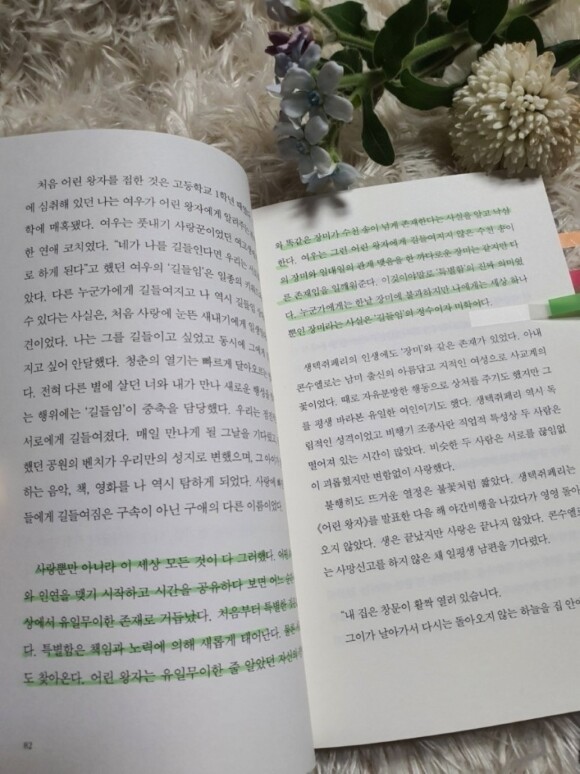 처음 어린 왕자를 접한 것은 고등학교 1학년
에 심취해 있던 나는 여우가 어린 왕자에게
학에 매혹됐다. 여우는 풋내기 사랑꾼이었던
한 연애 코치였다. “네가 나를 길들인다면 우리는
로 하게 된다”고 했던 여우의 ‘길들임’은 일종의
았다. 다른 누군가에게 길들여지고 나 역시
수 있다는 사실은, 처음 사랑에 눈뜬 새내기에게
견이었다. 나는 그를 길들이고 싶었고 동시에
지고 싶어 안달했다. 청춘의 열기는 빠르게
다. 전혀 다른 별에 살던 너와 내가 만나 새로운
는 행위에는 ‘길들임’이 중축을 담당했다. 우리는
서로에게 길들여졌다. 매일 만나게 될 그날을
했던 공원의 벤치가 우리만의 성지로 변했으며, 그
하는 음악, 책, 영화를 나 역시 탐하게 되었다.
들에게 길들여짐은 구속이 아닌 구애의 다른 이름이었다.
사랑뿐만 아니라 이 세상 모든 것이 다 그러했다.
와 인연을 맺기 시작하고 시간을 공유하다 보면
상에서 유일무이한 존재로 거듭났다. 처음부터 특별한
다. 특별함은 책임과 노력에 의해 새롭게 태어난다.
도 찾아온다. 어린 왕자는 유일무이한 줄 알았던
82
와 똑같은 장미가 수천 송이 넘게 존재한다는 사실을 알고 낙심
한다. 여우는 그런 어린 왕자에게 길들여지지 않은 수천 송이
의 장미와 일대일의 관계 맺음을 한 까다로운 장미는 같지만 다
른 존재임을 일깨워준다. 이것이야말로 ‘특별함’의 진짜 의미였
다. 누군가에게는 한낱 장미에 불과하지만 나에게는 세상 하나
뿐인 장미라는 사실은 ‘길들임’의 정수이자 미학이다.
생텍쥐페리의 인생에도 ‘장미’와 같은 존재가 있었다. 아내
콘수엘로는 남미 출신의 아름답고 지적인 여성으로 사교계의
꽃이었다. 때로 자유분방한 행동으로 상처를 주기도 했지만 그
를 평생 바라본 유일한 여인이기도 했다. 생텍쥐페리 역시 독
립적인 성격이었고 비행기 조종사란 직업적 특성상 두 사람은
떨어져 있는 시간이 많았다. 비슷한 두 사람은 서로를 끊임없
이 괴롭혔지만 변함없이 사랑했다.
불행히도 뜨거운 열정은 불꽃처럼 짧았다. 생텍쥐페리는
《어린 왕자》를 발표한 다음 해 야간비행을 나갔다가 영영 돌아
오지 않았다. 생은 끝났지만 사랑은 끝나지 않았다.
는 사망신고를 하지 않은 채 일평생 남편을 기다렸다.
“내 집은 창문이 활짝 열려 있습니다.
그이가 날아가서 다시는 돌아오지 않는 하늘을 집 안